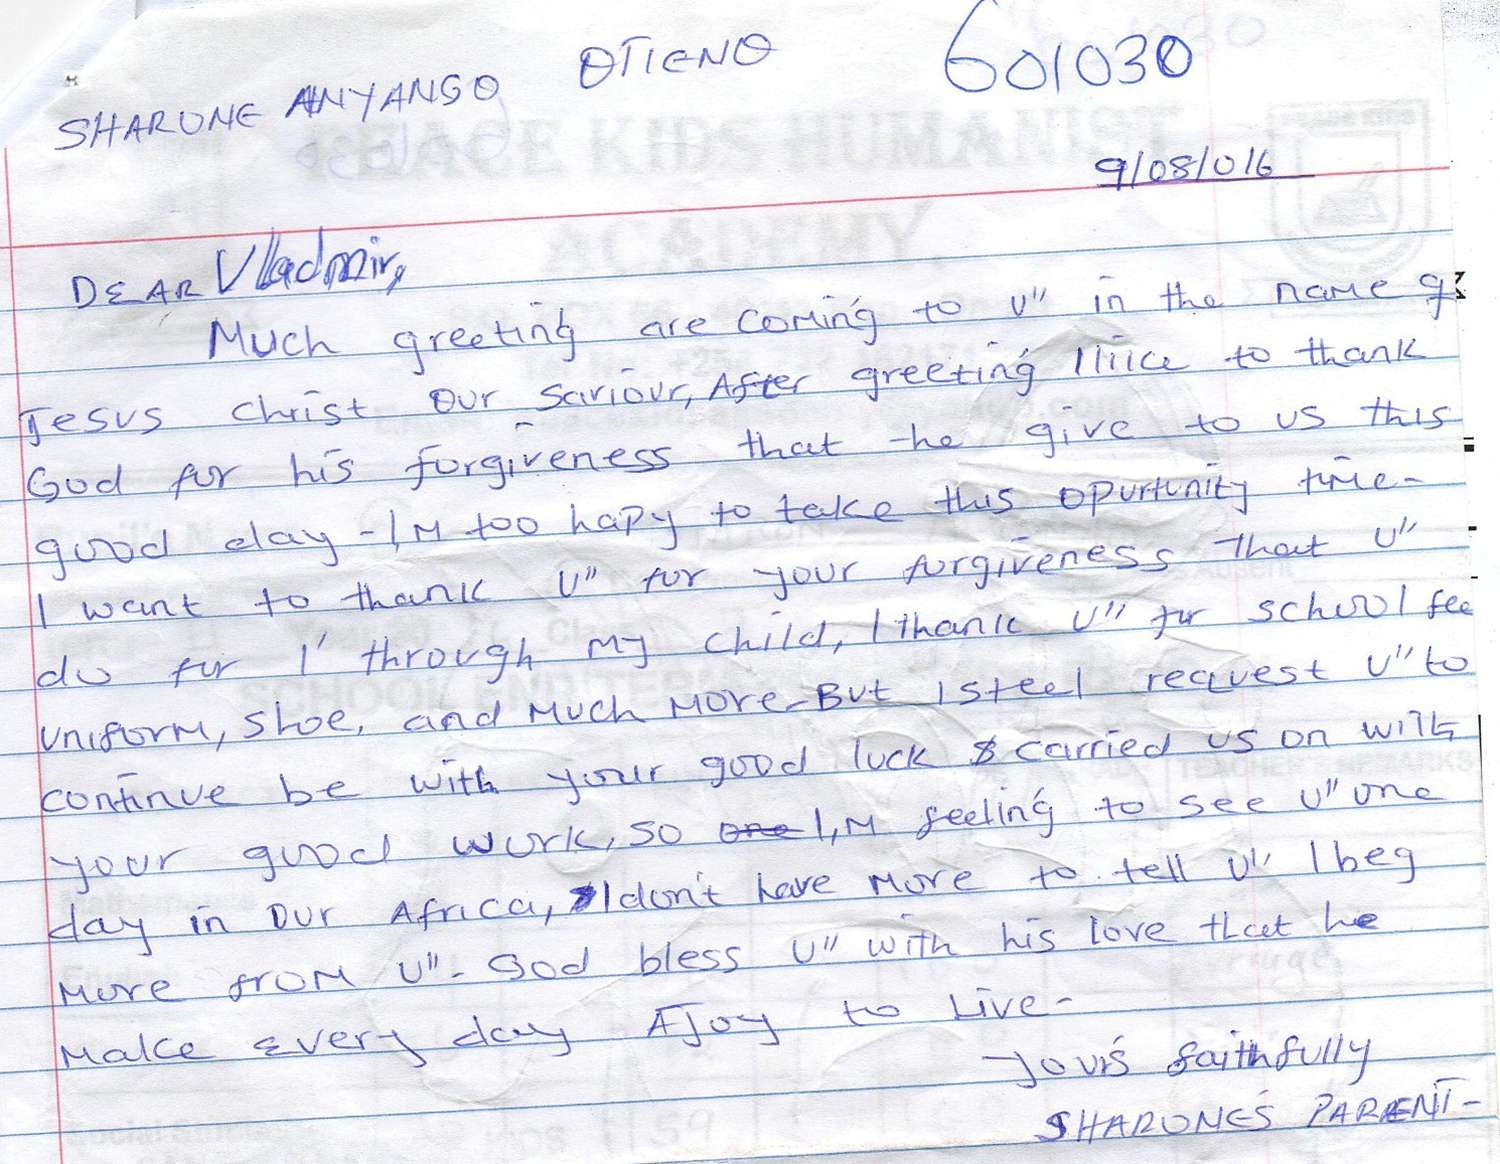 SHARONE ANYANGO OTIENO 601030
9/08/016
DEAR Vladmir,
Much greeting are coming to U" in the name of
Jesus christ our saviour, After greeting I liice to thank
God for his forgiveness that he give to us this
good day - I,M too hapy to take this opurtunity time -
I want to thank U" for your forgiveness that U"
do for I' through my child, I thank U" for school fee
uniform, shoe, and much more - But I steel request U" to
continue be with your good luck & carried us on with
your good work, so one I,M feeling to see U" one
day in our Africa, I don't have more to tell U" I beg
more from U" - God bless U" with his love that he
make every day Ajoy to Live -
Yours faithfully
SHARONE'S PARENT -
PEACE KIDS HUMANIST
ACADEMY
SCHOOL END TERM
TEACHER'S REMARKS